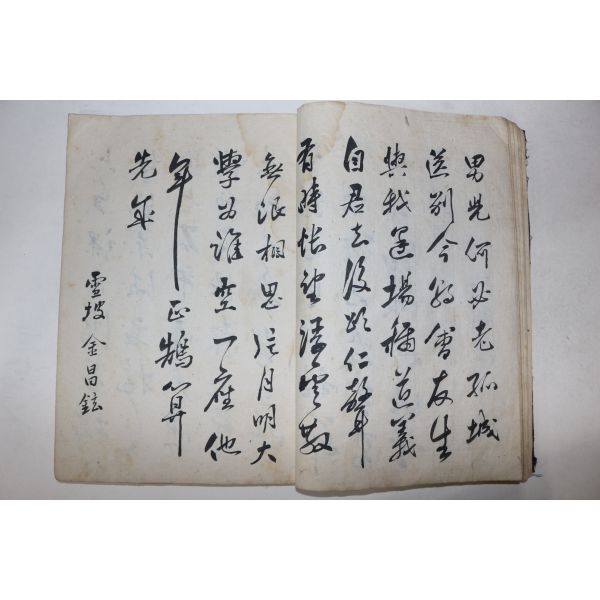 男兒何必老孤城
送別今爲會友生
與我場稱道義
自君去後頌仁聲
有時悵望浮雲散
無限相思片月明大
學爲誰空一座他
年正鵠算
先成
雪坡金昌鉉